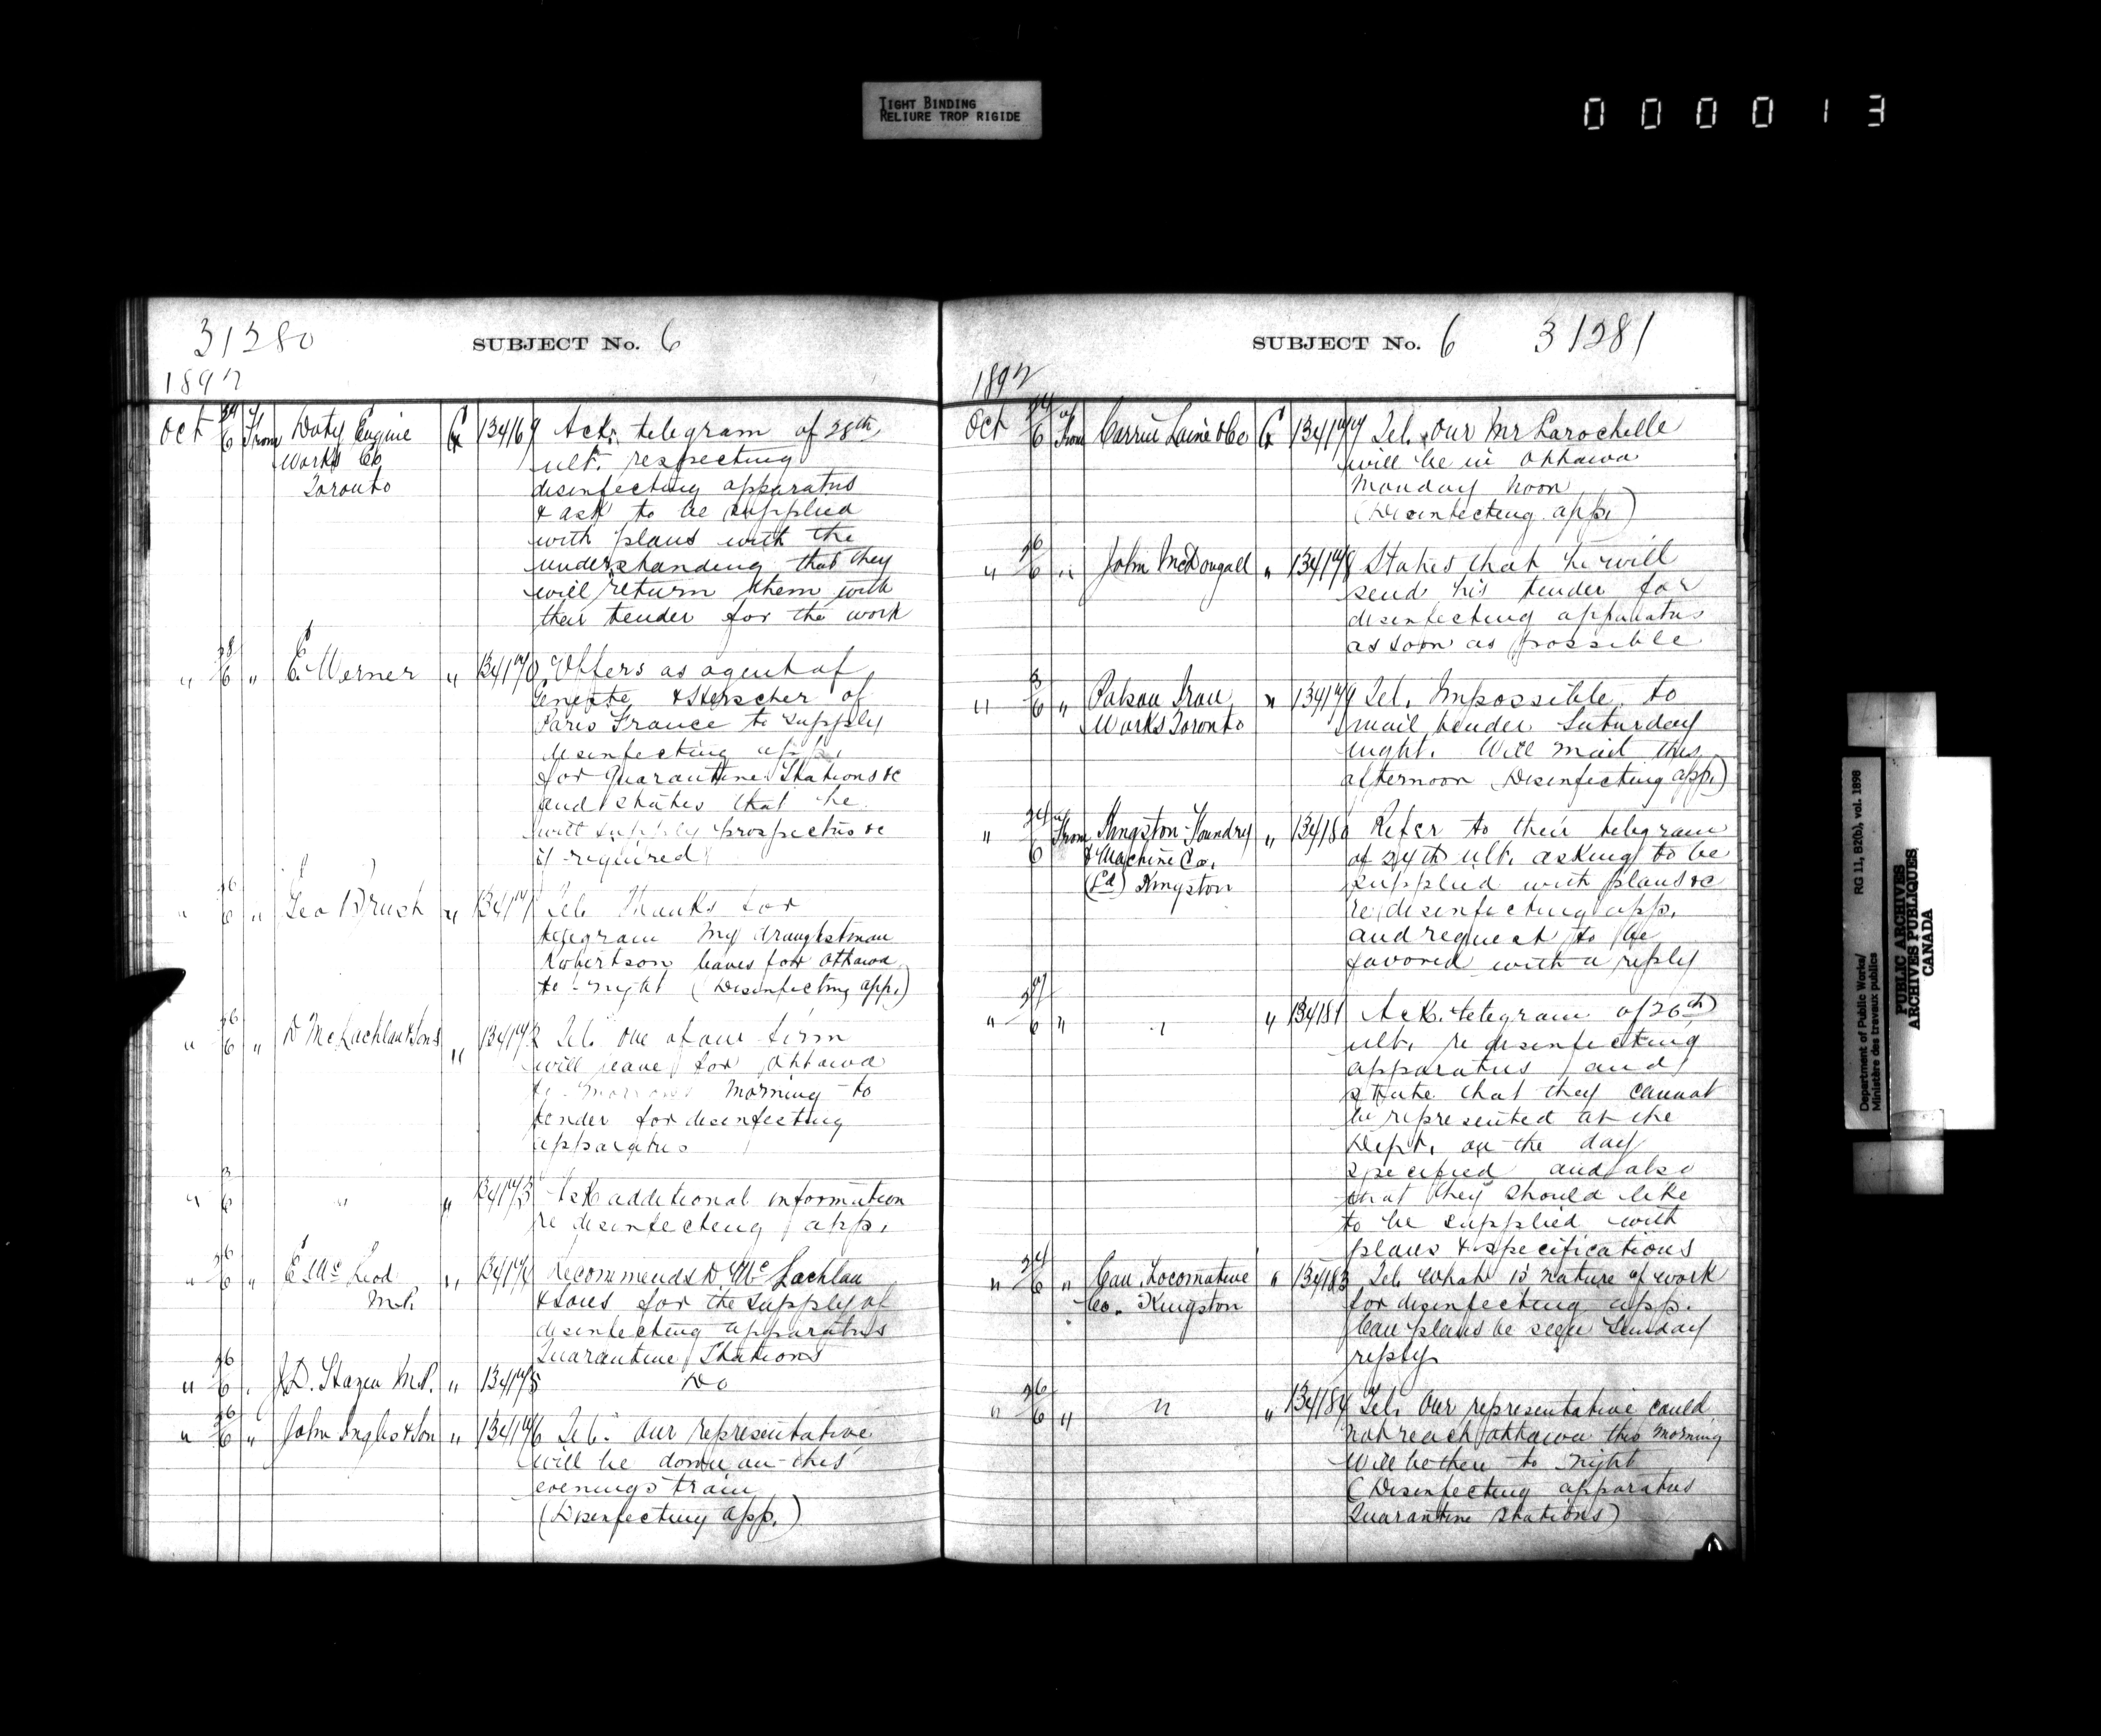 TIGHT BINDING
RELIURE TROP RIGIDE
0 0 0 0 1 3
31280
SUBJECT No. 6
1892
Oct 29/6 From Doty Engine Works Co Toronto 134169 Ack. telegram of 28th
ult. respecting
disinfecting apparatus
& ask to be supplied
with plans with the
understanding that they
will return them with
their tender for the work
" 28/6 " E. Werner " 134170 Offers as agent of
Geneste & Herscher of
Paris France to supply
disinfecting app.
for Quarantine Stations &c
and states that he
will supply prospectus &c
if required
" 26/6 " Geo Brush " 134171 Tel. Thanks for
telegram My draughtsman
Robertson leaves for Ottawa
to-night (Disinfecting app.)
" 26/6 " D McLachlan & Sons " 134172 Tel. One of our firm
will leave for Ottawa
to-morrow morning to
tender for disinfecting
apparatus
" 3/6 " " 134173 Ask additional information
re disinfecting app.
" 26/6 " E McLeod M.P. " 134174 Recommends D McLachlan
& Sons for the supply of
disinfecting apparatus
Quarantine Stations
" 26/6 " J.D. Hazen M.P. " 134175 Do
" 26/6 " John Inglis & Son " 134176 Tel. Our representative
will be down on this
evenings train
(Disinfecting app.)
SUBJECT No. 6
31281
1892
Oct /6 From Carrier Laine & Co 134177 Tel. Our Mr Larochelle
will be in Ottawa
Monday noon
(Disinfecting app.)
" 26/6 " John McDougall " 134178 States that he will
send his tender for
disinfecting apparatus
as soon as possible
" 3/6 " Polson Iron Works Toronto " 134179 Tel. Impossible to
mail tender Saturday
night. Will mail this
afternoon (Disinfecting app.)
" 24/6 From Kingston Foundry & Machine Co. (Ld) Kingston " 134180 Refer to their telegram
of 24th ult. asking to be
supplied with plans &c
re disinfecting app.
and request to be
favored with a reply
" 27/6 " " " 134181 Ack. telegram of 26th
ult. re disinfecting
apparatus and
state that they cannot
be represented at the
Dept. on the day
specified and also
that they should like
to be supplied with
plans & specifications
" 24/6 " Can. Locomotive Co. Kingston " 134183 Tel. What is nature of work
for disinfecting app.
Can plans be seen Sunday
reply
" 26/6 " " " 134184 Tel. Our representative could
not reach Ottawa this morning
Will be there to night
(Disinfecting apparatus
Quarantine Stations)
Department of Public Works/
Ministère des travaux publics
RG 11, B2(b), vol. 1898
PUBLIC ARCHIVES
ARCHIVES PUBLIQUES
CANADA